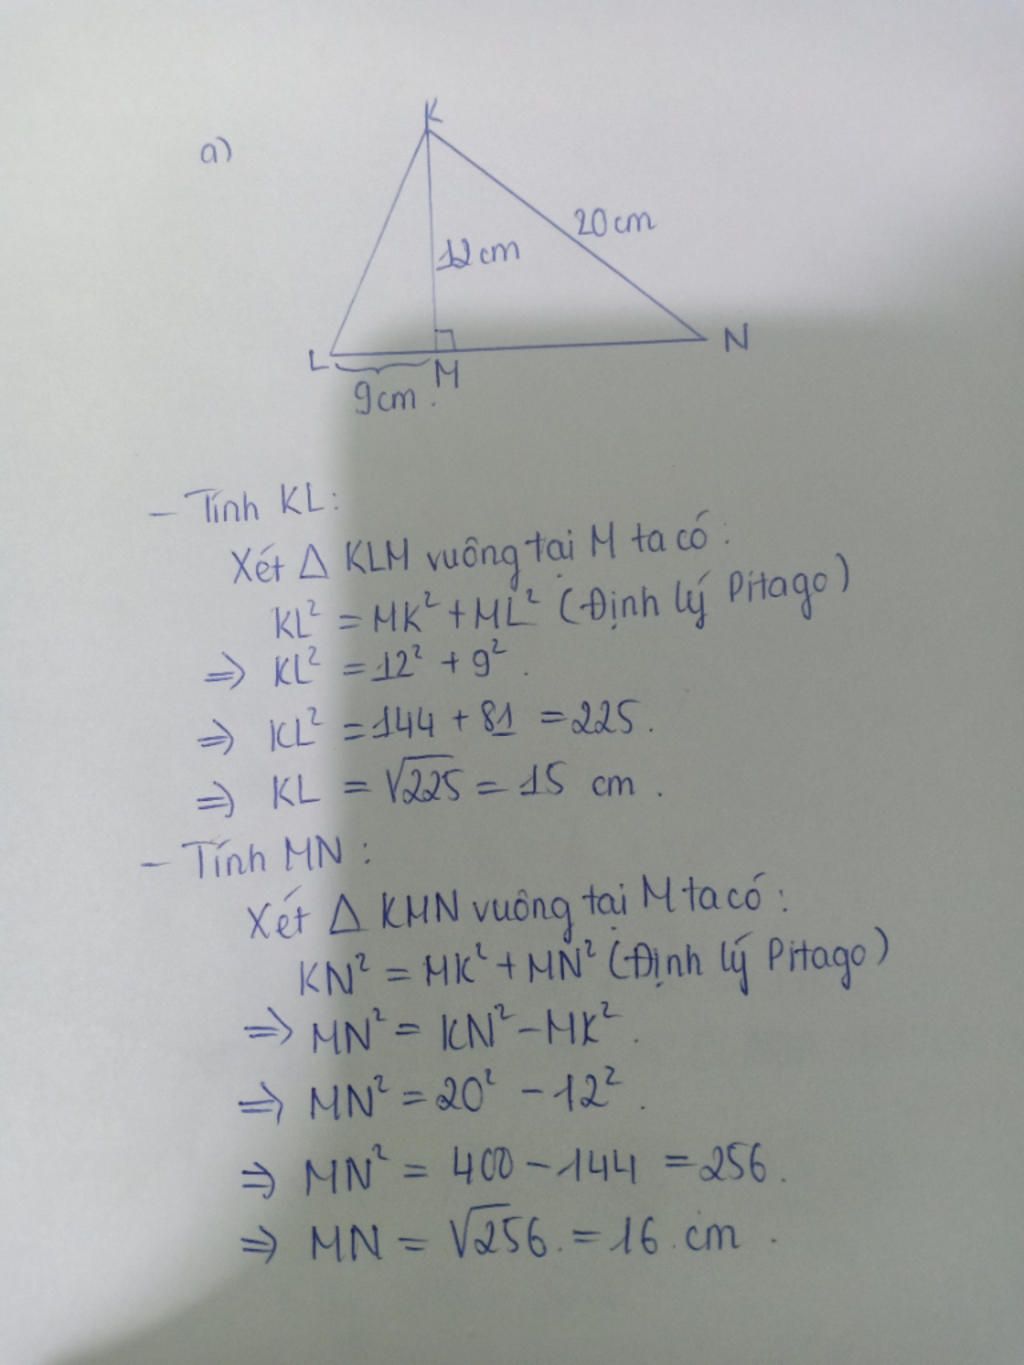 a)
K
12cm
20cm
L
M
N
9cm.
- Tính KL:
Xét Δ KLM vuông tại M ta có:
KL² = MK² + ML² (Định lý Pitago)
⇒ KL² = 12² + 9².
⇒ KL² = 144 + 81 = 225.
⇒ KL = √225 = 15 cm.
- Tính MN:
Xét Δ KMN vuông tại M ta có:
KN² = MK² + MN² (Định lý Pitago)
⇒ MN² = KN² - MK².
⇒ MN² = 20² - 12².
⇒ MN² = 400 - 144 = 256.
⇒ MN = √256. = 16 cm.